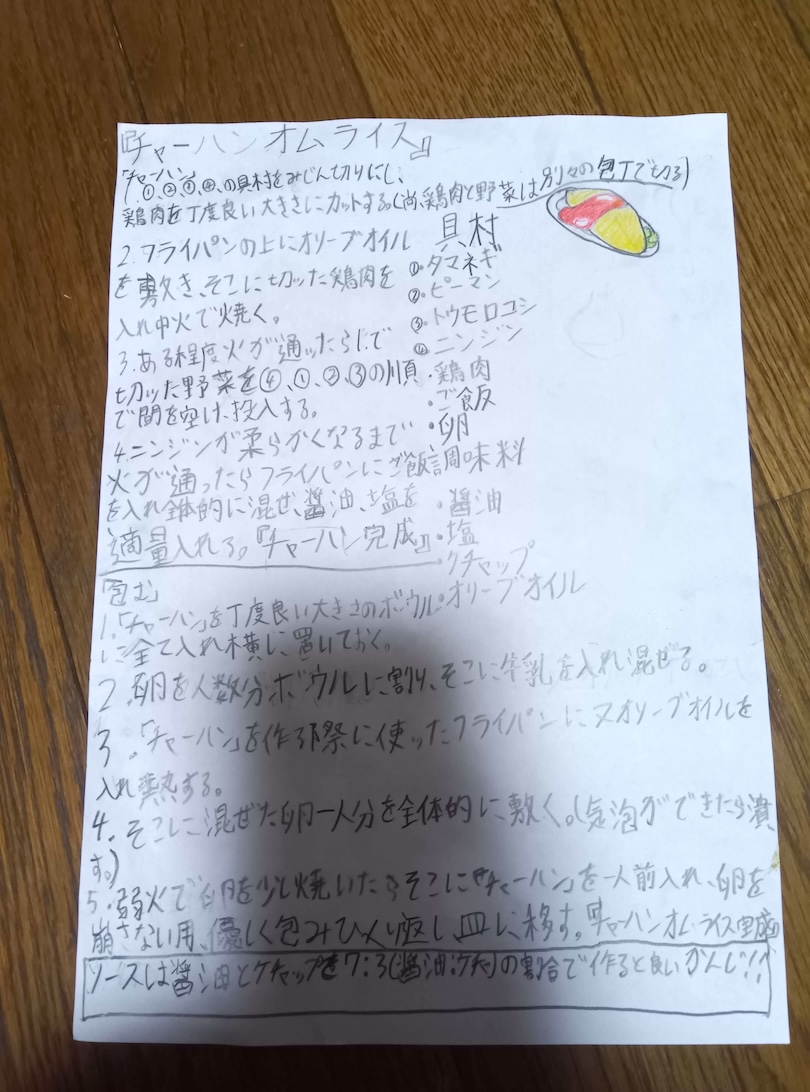 『チャーハン オムライス』
「チャーハン」
1.①、②、③、④、の具材をみじん切りにし、
鶏肉を丁度良い大きさにカットする。(尚、鶏肉と野菜は別々の包丁で切る)
2.フライパンの上にオリーブオイル
を敷き、そこに切った鶏肉を
入れ中火で焼く。
3.ある程度火が通ったら
切った野菜を④、①、②、③の順
で間を空け、投入する。
4.ニンジンが柔らかくなるまで
火が通ったらフライパンにご飯
を入れ全体的に混ぜ、醤油、塩を
適量入れる。『チャーハン完成』
具材
①.タマネギ
②.ピーマン
③.トウモロコシ
④.ニンジン
・鶏肉
・ご飯
・卵
調味料
・醤油
・塩
・ケチャップ
・オリーブオイル
「包む」
1.「チャーハン」を丁度良い大きさのボウル
に全て入れ横に置いておく。
2.卵を人数分ボウルに割り、そこに牛乳を入れ混ぜる。
3.「チャーハン」を作る際に使ったフライパンに又オリーブオイルを
入れ熱する。
4.そこに混ぜた卵一人分を全体的に敷く。(気泡ができたら潰
す。)
5.弱火で卵を少し焼いたらそこに『チャーハン」を一人前入れ、卵を
崩さない用、優しく包みひっくり返し、皿に移す。『チャーハンオムライス完成』
ソースは醤油とケチャップを7:3(醤油:ケチャ)の割合で作ると良いかんじ!!